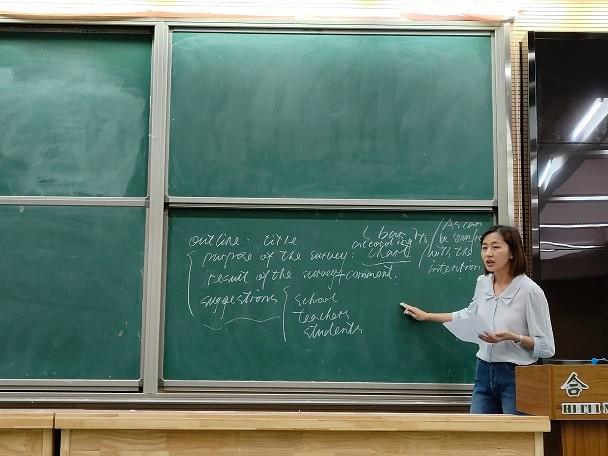 outline: title
purpose of the survey: ( bar chart
according to / As can be seen
with the
result of the survey + comment.
suggestions { school
teachers
students
合
HEFEI N